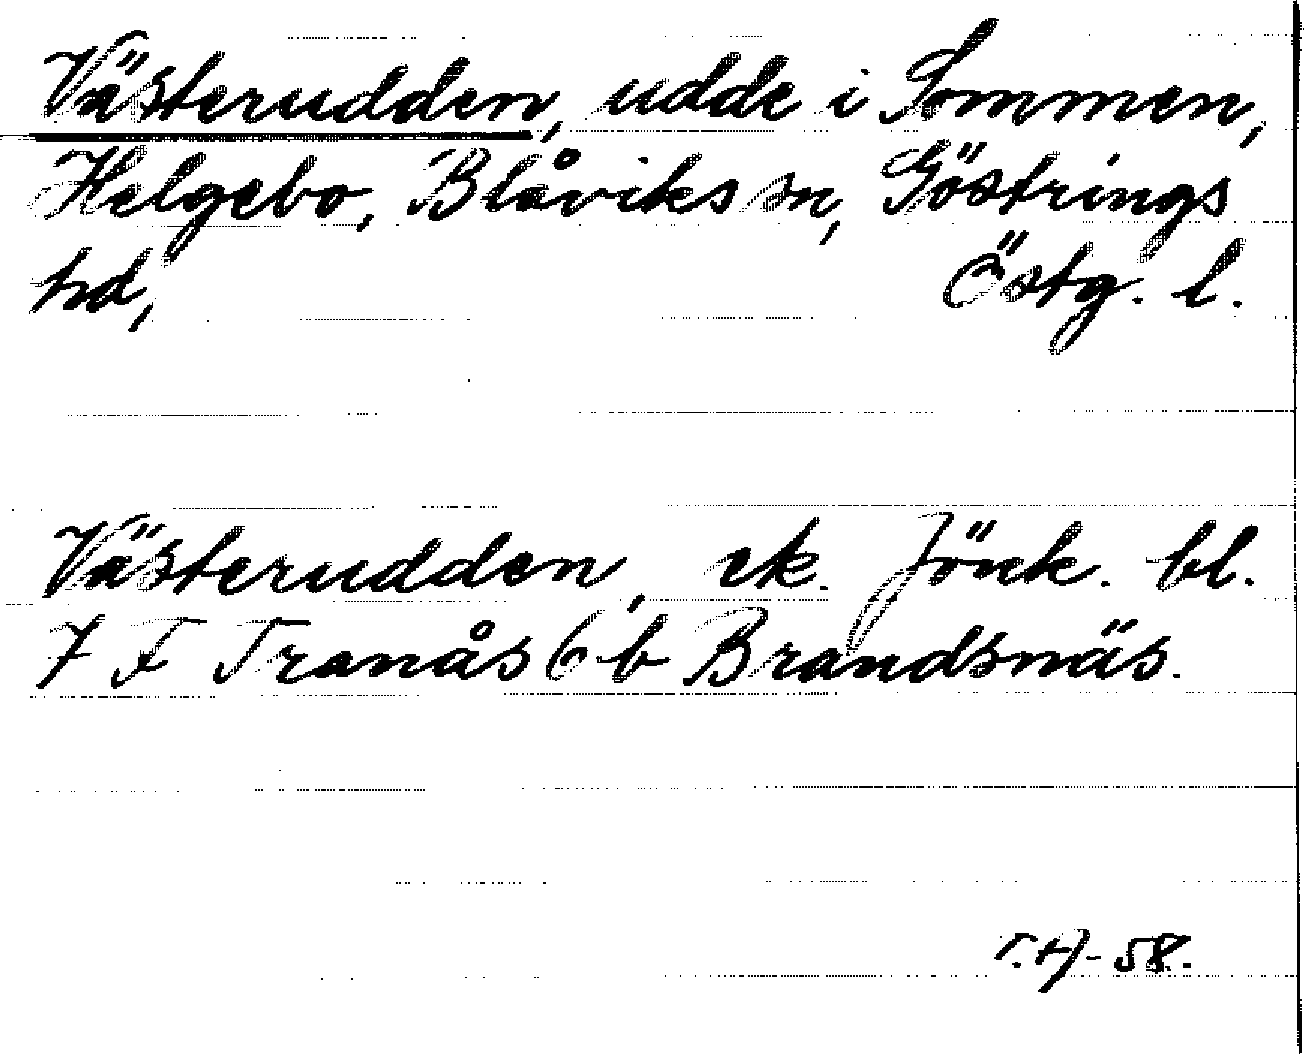 Västerudden, udde i Sommen,
Helgebo, Blåviks sn, Göstrings
hd, Östg. l.
Västerudden, ek. Jönk. bl.
7 F Tranås 6 b Brandsnäs.
T.H-58.